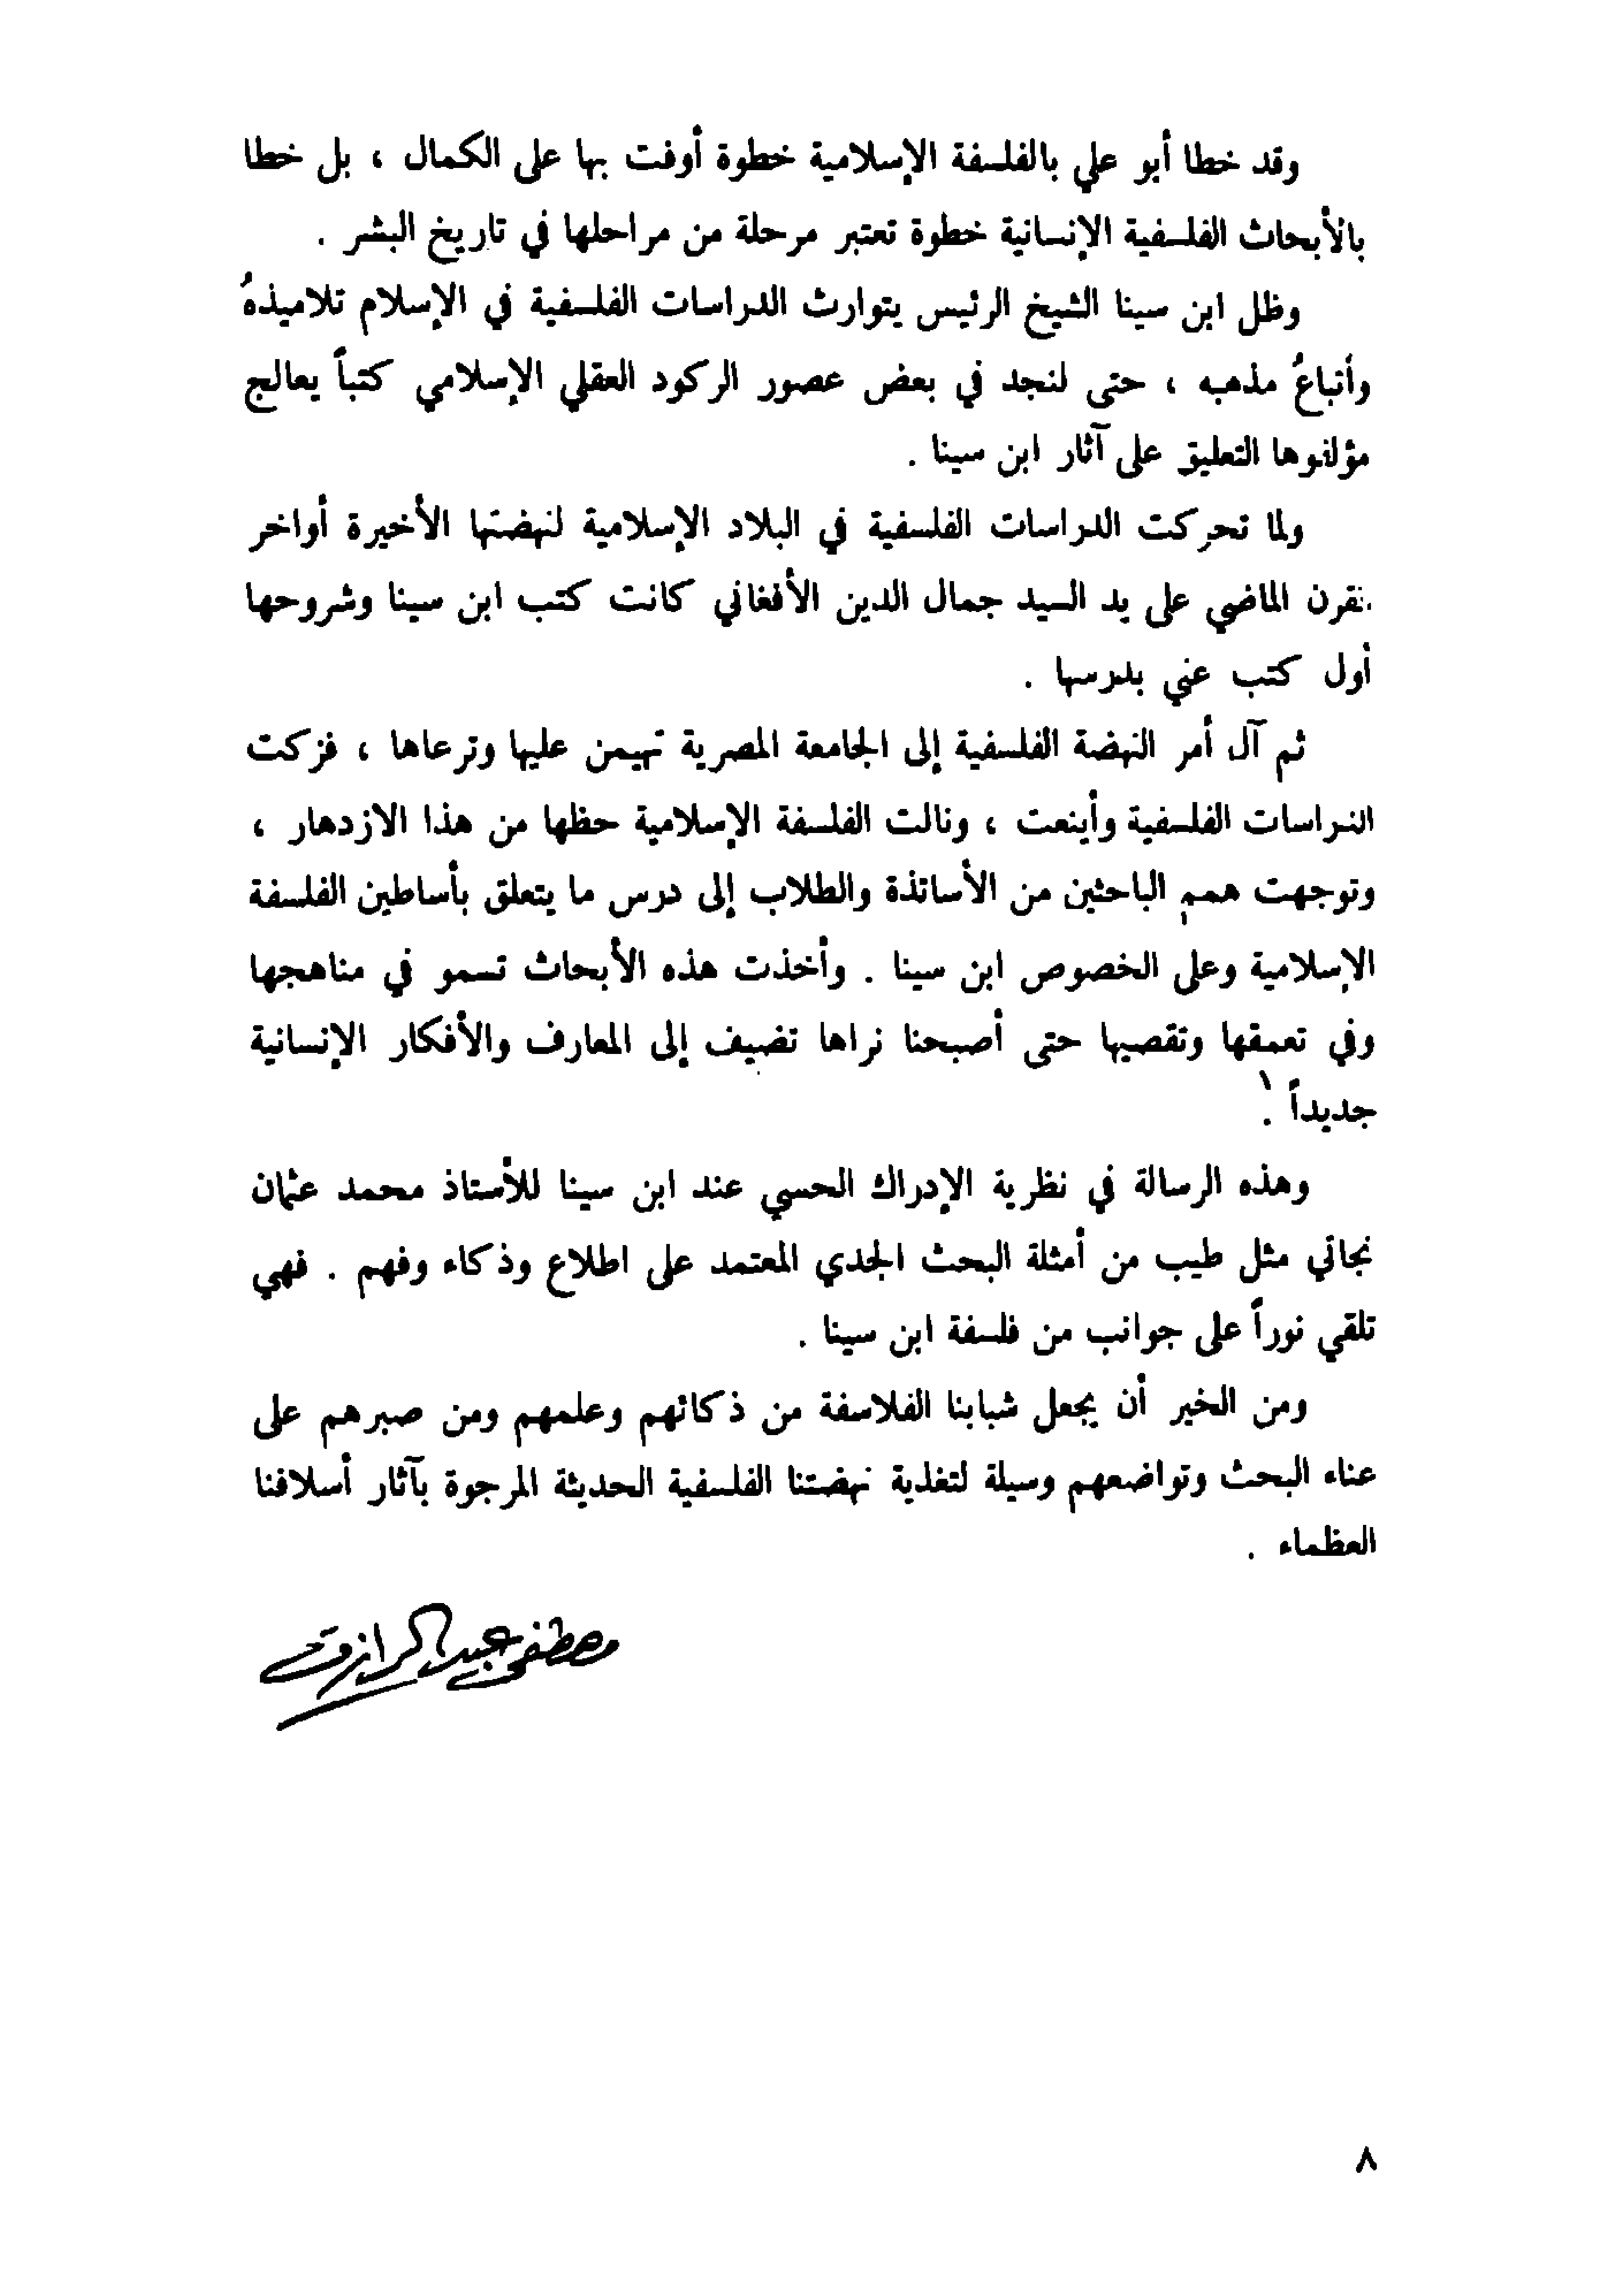 وقد خطا أبو علي بالفلسفة الإسلامية خطوة أوفت بها على الكمال ، بل خطا
بالأبحاث الفلسفية الإنسانية خطوة تعتبر مرحلة من مراحلها في تاريخ البشر .
وظل ابن سينا الشيخ الرئيس يتوارث الدراسات الفلسفية في الإسلام تلاميذهُ
وأتباعُ مذهبه ، حتى لنجد في بعض عصور الركود العقلي الإسلامي كتباً يعالج
مؤلفوها التعليق على آثار ابن سينا .
ولما تحركت الدراسات الفلسفية في البلاد الإسلامية لنهضتها الأخيرة أواخر
القرن الماضي على يد السيد جمال الدين الأفغاني كانت كتب ابن سينا وشروحها
أول كتب عني بدرسها .
ثم آل أمر النهضة الفلسفية إلى الجامعة المصرية تهيمن عليها وترعاها ، فزكت
الدراسات الفلسفية وأينعت ، ونالت الفلسفة الإسلامية حظها من هذا الازدهار ،
وتوجهت همم الباحثين من الأساتذة والطلاب إلى درس ما يتعلق بأساطين الفلسفة
الإسلامية وعلى الخصوص ابن سينا . وأخذت هذه الأبحاث تسمو في مناهجها
وفي تعمقها وتقصيها حتى أصبحنا نراها تضيف إلى المعارف والأفكار الإنسانية
جديداً .
وهذه الرسالة في نظرية الإدراك الحسي عند ابن سينا للأستاذ محمد عثمان
نجاتي مثل طيب من أمثلة البحث الجدي المعتمد على اطلاع وذكاء وفهم . فهي
تلقي نوراً على جوانب من فلسفة ابن سينا .
ومن الخير أن يجعل شبابنا الفلاسفة من ذكائهم وعلمهم ومن صبرهم على
عناء البحث وتواضعهم وسيلة لتغذية نهضتنا الفلسفية الحديثة المرجوة بآثار أسلافنا
العظماء .
مصطفى عبد الرازق
٨